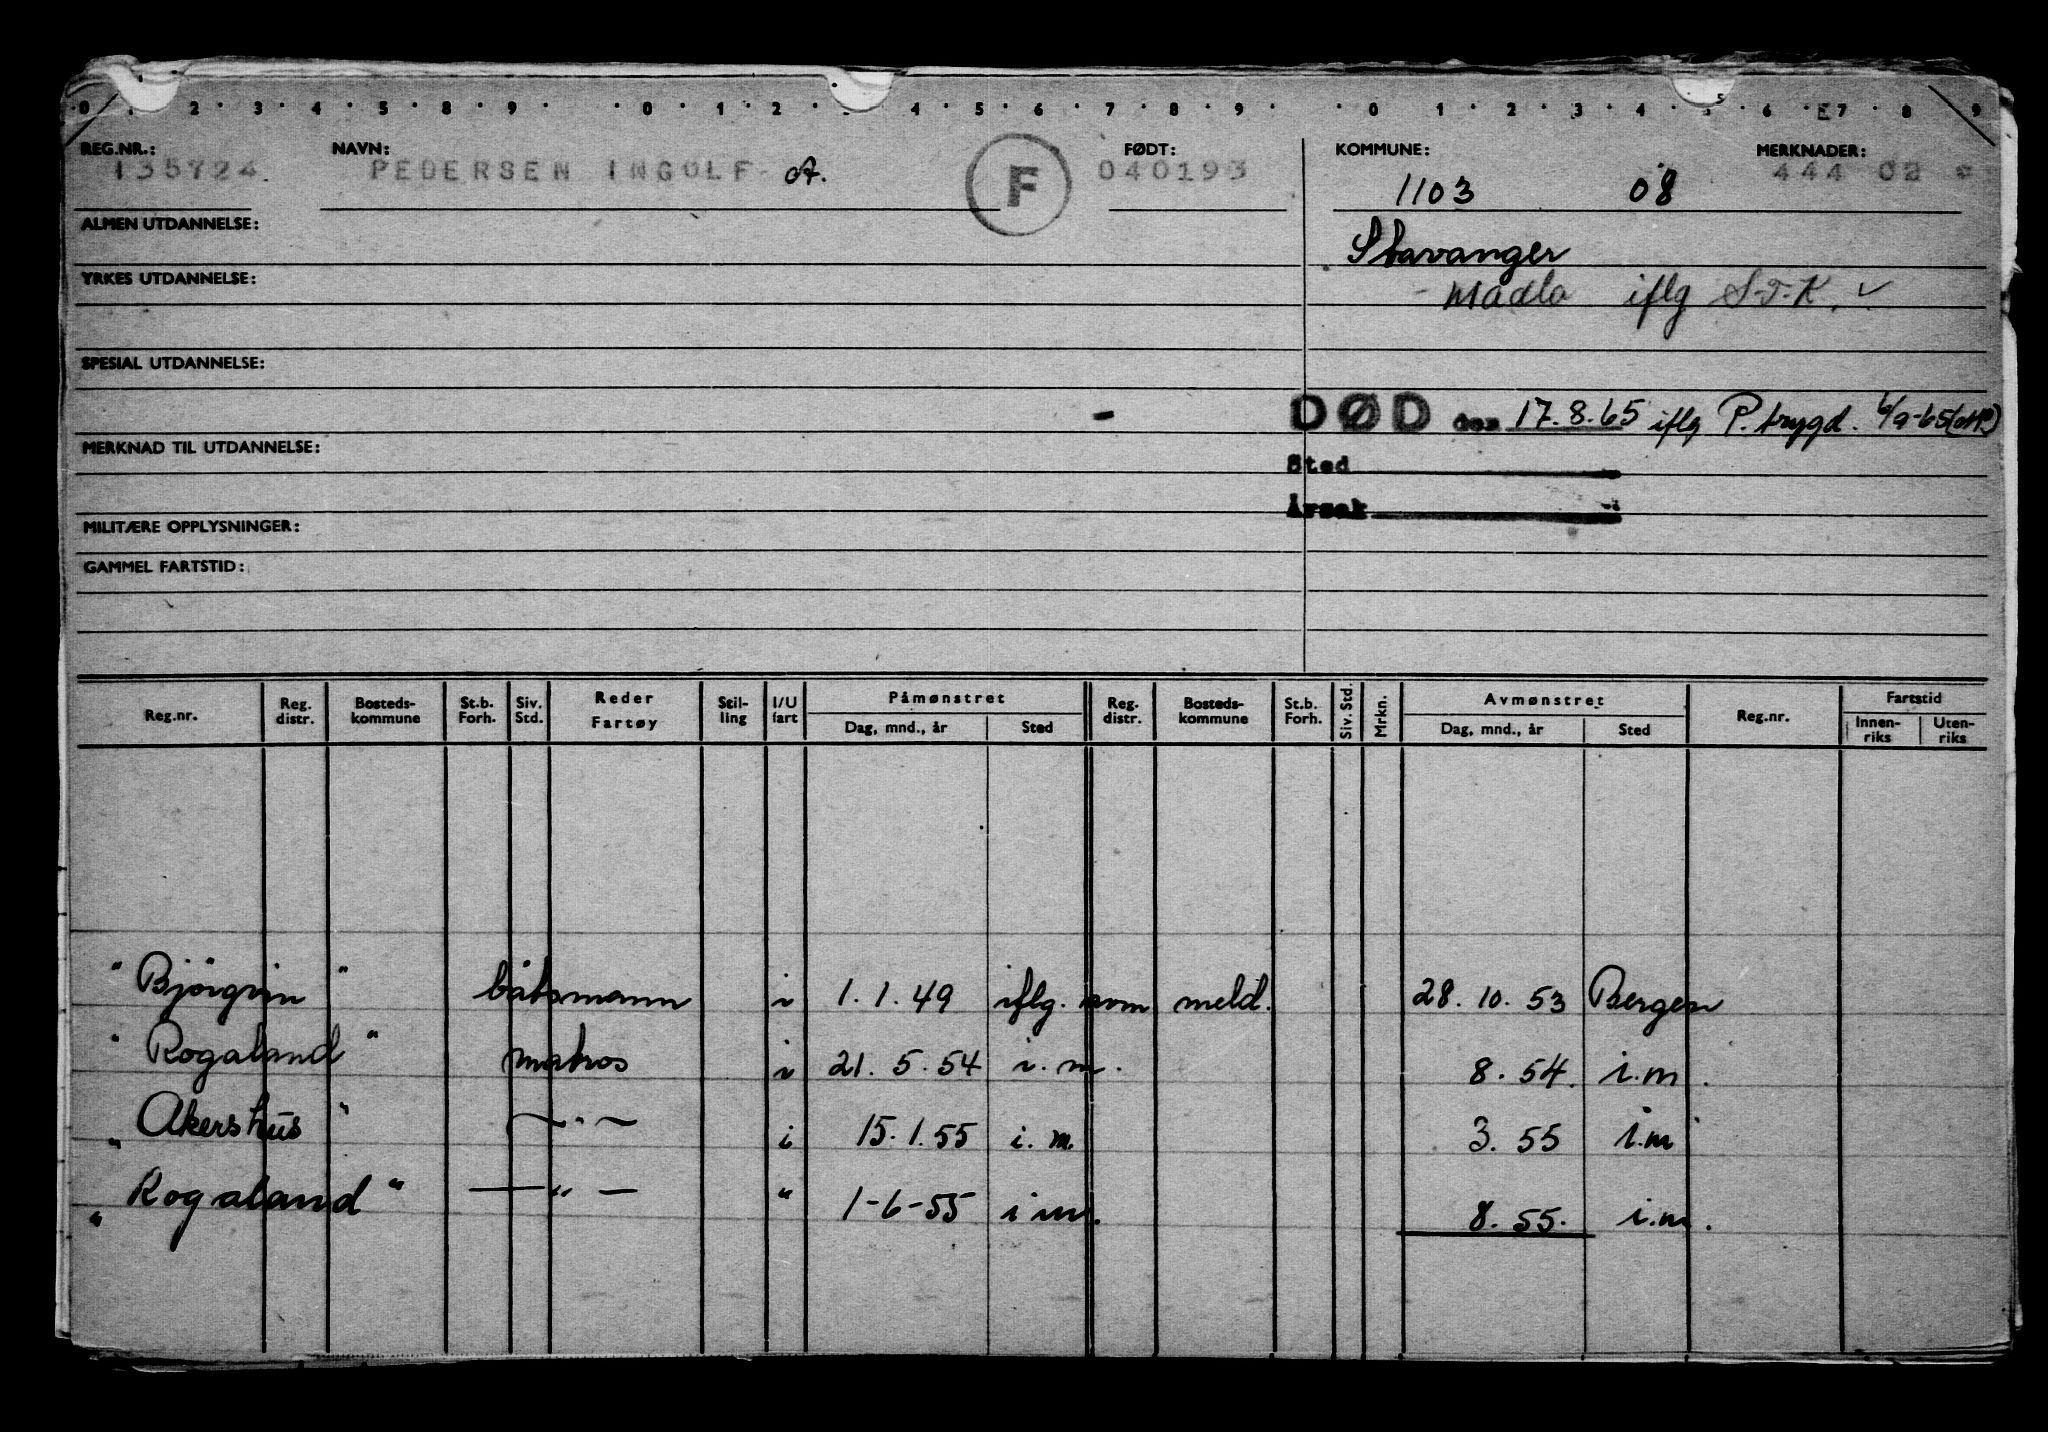 0 . . 2 . 3 . 4 . 5 . 8 . 9 . . 0 . 1 . 2 . . 4 . 5 . 6 . 7 . 8 . 9 . . 0 . 1 . 2 . 3 . 4 . 5 . 6 . E7 . 8 . 9
REG.NR.: NAVN: FØDT: KOMMUNE: MERKNADER:
135724 PEDERSEN INGOLF A. F 040193 1103 08 444 02
ALMEN UTDANNELSE:
Stavanger
YRKES UTDANNELSE:
- Madla iflg S.T.K. ✓
SPESIAL UTDANNELSE:
- DØD den 17.8.65 iflg P.trygd. 6/9-65
MERKNAD TIL UTDANNELSE:
Sted
Årsak
MILITÆRE OPPLYSNINGER:
GAMMEL FARTSTID:
Reg.nr. Reg. distr. Bosteds-kommune St.b. Forh. Siv. Std. Reder Fartøy Stil-ling I/U fart Påmønstret Dag, mnd., år Sted Reg. distr. Bosteds-kommune St.b. Forh. Siv. Std. Mrkn. Avmønstret Dag, mnd., år Sted Reg.nr. Fartstid Innen-riks Uten-riks
"Björgvin" båtsmann i 1.1.49 iflg. som meld. 28.10.53 Bergen
"Rogaland" matros i 21.5.54 i.m. 8.54. i.m.
"Akershus" —"— i 15.1.55 i.m. 3.55 i.m
"Rogaland" —"— " 1-6-55 i m. 8.55. i.m.